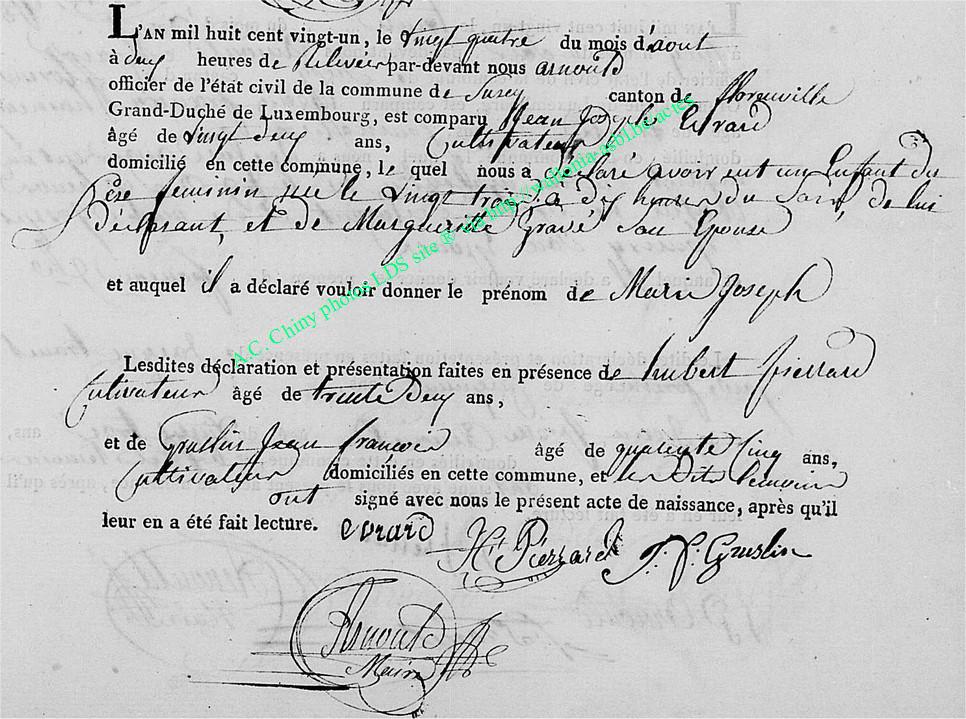 L'AN mil huit cent vingt-un, le vingt quatre du mois d'aout
à deux heures de Relevée par-devant nous arnould
officier de l'état civil de la commune de Suxy canton de florenville
Grand-Duché de Luxembourg, est comparu Jean Joseph Evrard
âgé de vingt deux ans, Cultivateur
domicilié en cette commune, le quel nous a déclaré avoir eut un Enfant du
Sexe feminin né le vingt trois à dix heures du Soir, de lui
déclarant, et de Marguerite Gravé Son Epouse
et auquel il a déclaré vouloir donner le prénom de Marie Joseph
Lesdites déclaration et présentation faites en présence de hubert pierrard
Cultivateur âgé de trente Deux ans,
et de Gruslin Jean francois âgé de quarente Cinq ans,
Cultivateur domiciliés en cette commune, et les Dits temoins
ont signé avec nous le présent acte de naissance, après qu'il
leur en a été fait lecture. evrard
Ht Pierrard J. f. Gruslin
Arnould
Maire
A.C. Chiny photos LDS site ® http://wallonia-asbl.be/actes